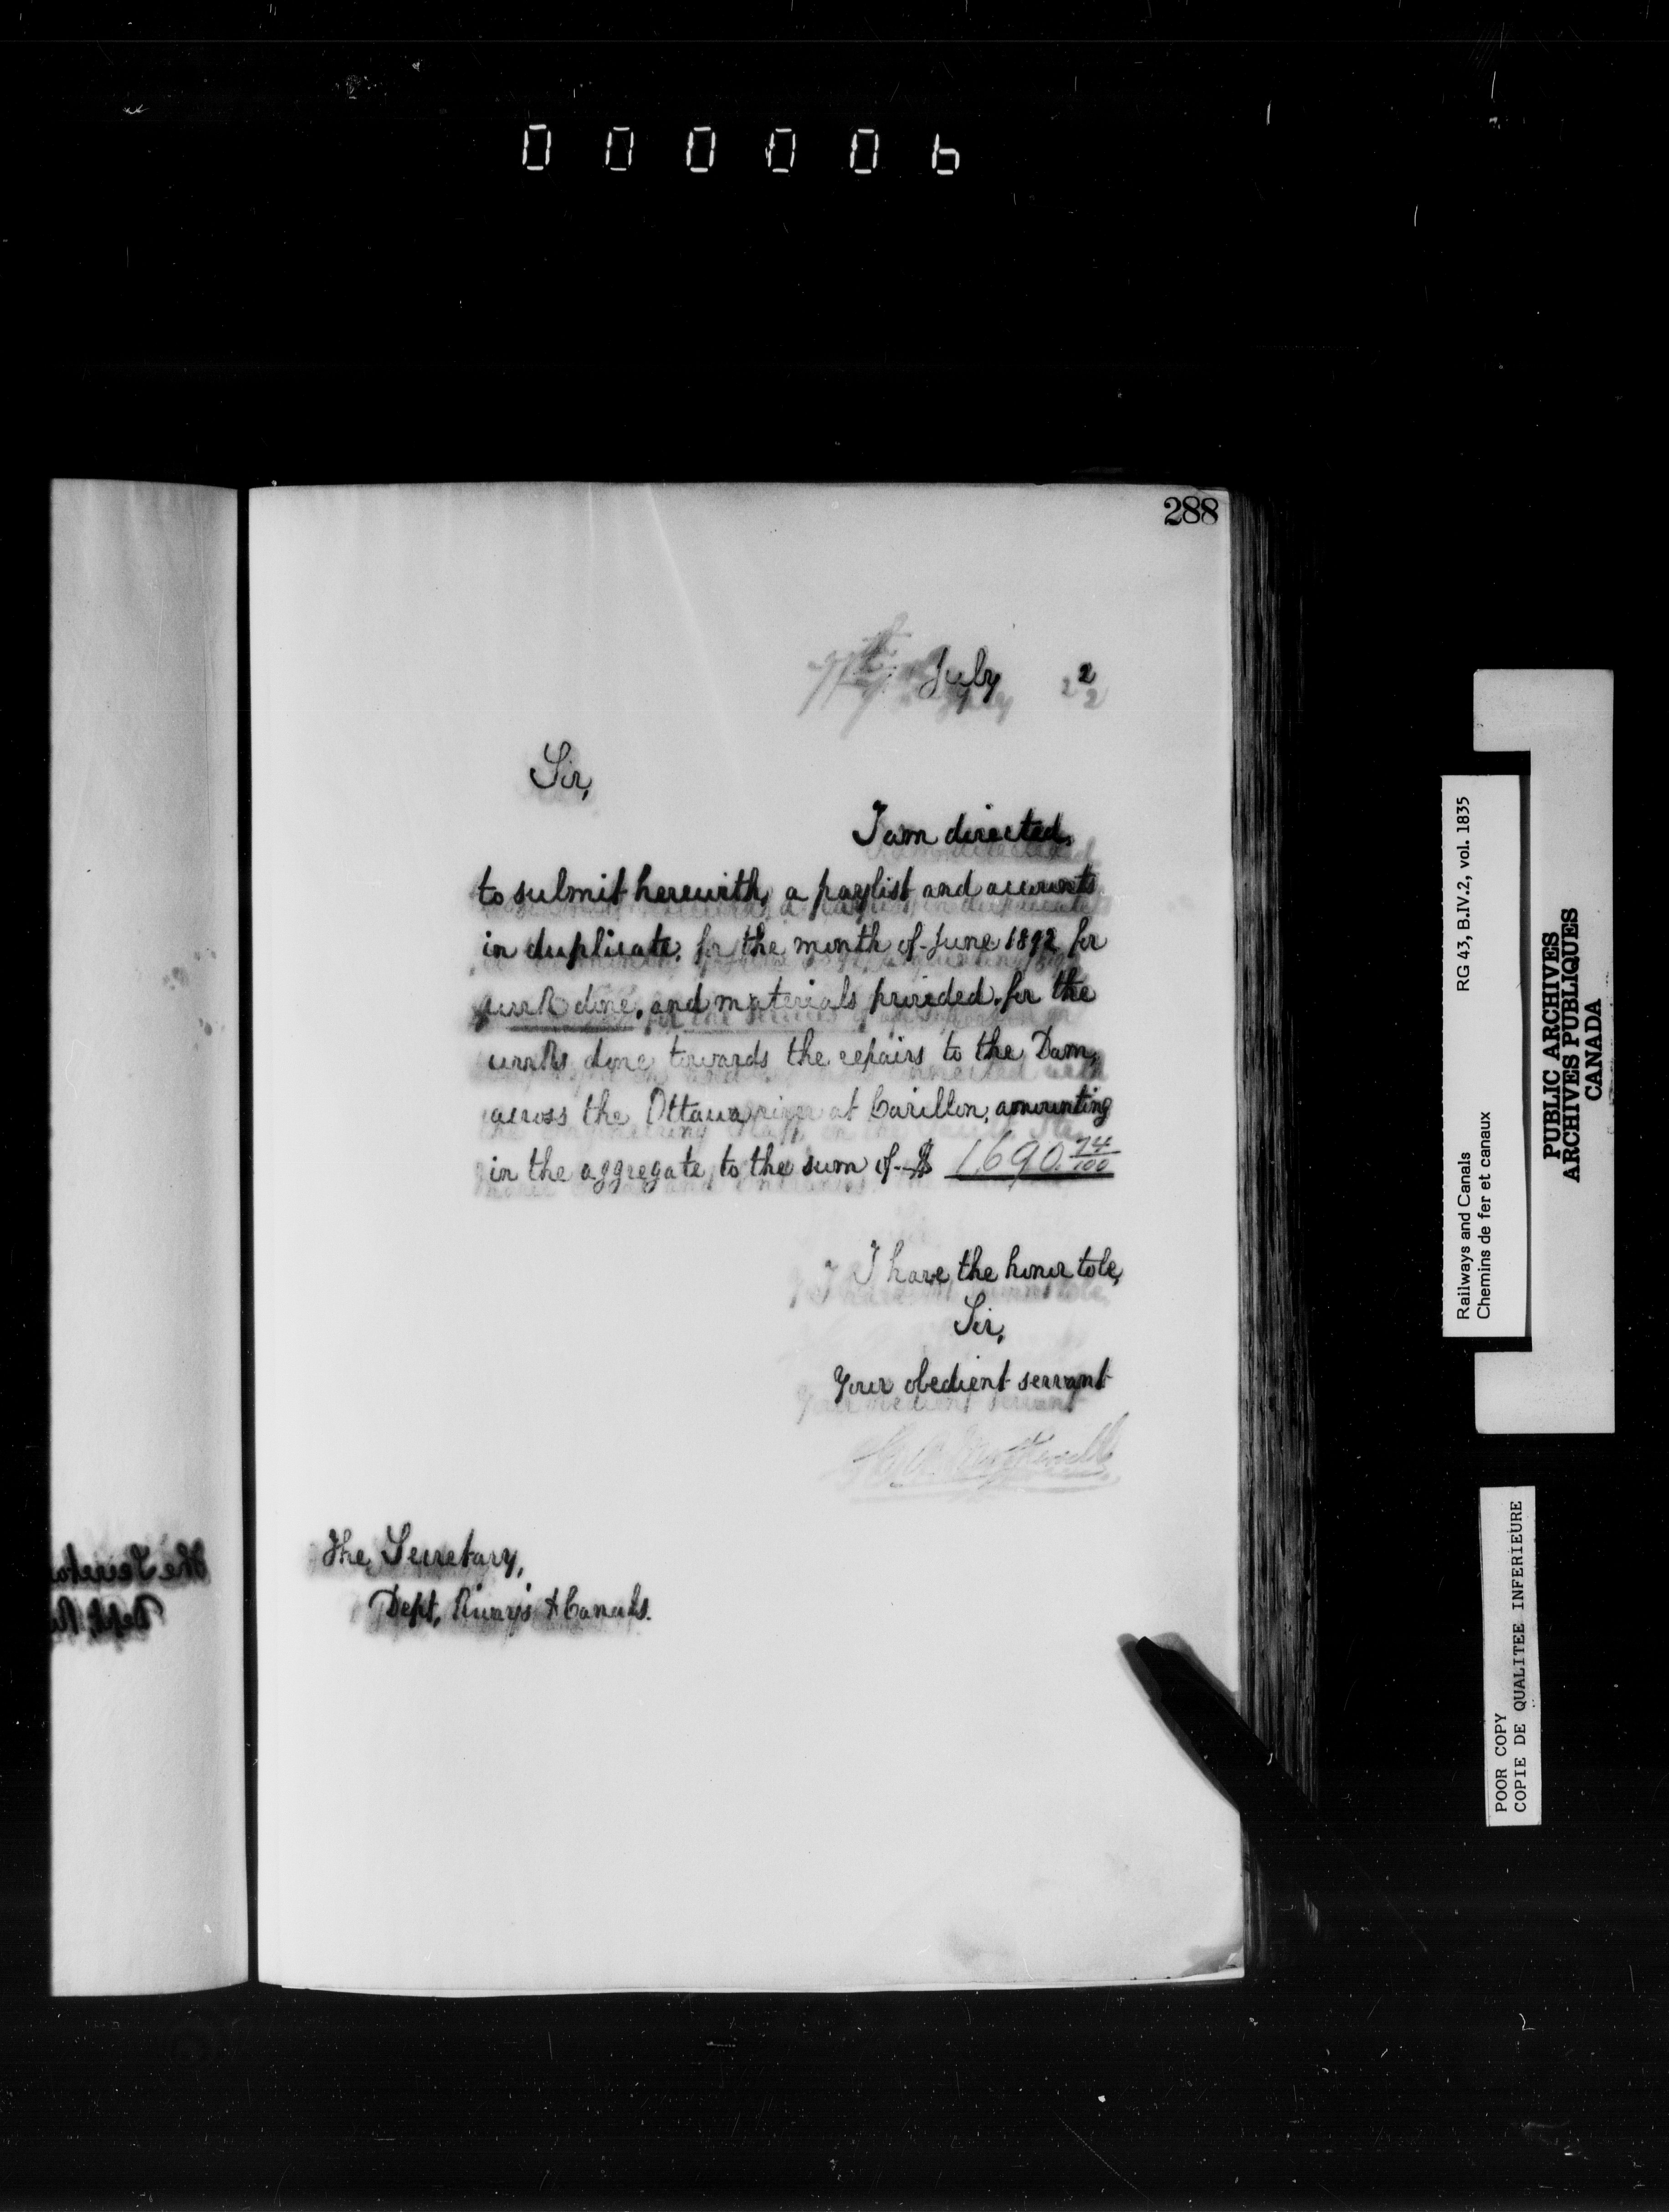 000006
288
July 2
Sir,
I am directed
to submit herewith, a paylist and accounts
in duplicate, for the month of June 1892 for
work done, and materials provided for the
works done towards the repairs to the Dam,
across the Ottawa river at Carillon, amounting
in the aggregate to the sum of $ 1,690.74/100
I have the honor to be,
Sir,
Your obedient servant
The Secretary,
Dept, Rways & Canals.
Railways and Canals RG 43, B.IV.2, vol. 1835
Chemins de fer et canaux
PUBLIC ARCHIVES
ARCHIVES PUBLIQUES
CANADA
POOR COPY
COPIE DE QUALITEE INFERIEURE